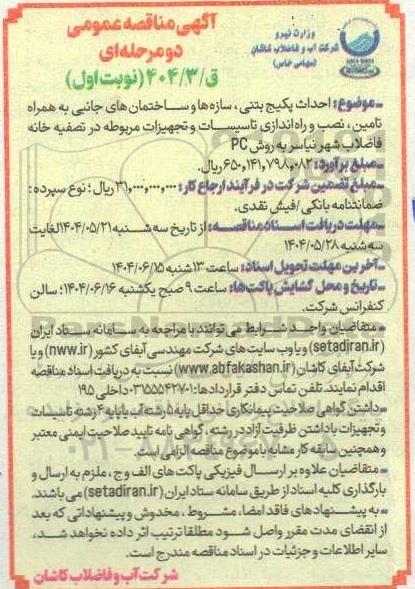 وزارت نیرو
شرکت آب و فاضلاب کاشان
(سهامی خاص)
آگهی مناقصه عمومی
دو مرحله‌ای
ق/۴۰۴/۳ (نوبت اول)
- موضوع: احداث پکیج بتنی، سازه‌ها و ساختمان های جانبی به همراه
تامین، نصب و راه‌اندازی تاسیسات و تجهیزات مربوطه در تصفیه خانه
فاضلاب شهر نیاسر به روش PC
- مبلغ برآورد: ۶۵۰,۱۴۱,۷۹۸,۰۸۲ ریال.
- مبلغ تضمین شرکت در فرآیند ارجاع کار: ۳۱,۰۰۰,۰۰۰,۰۰۰ ریال؛ نوع سپرده:
ضمانتنامه بانکی/فیش نقدی.
- مهلت دریافت اسناد مناقصه: از تاریخ سه‌شنبه ۱۴۰۴/۰۵/۲۱ لغایت
سه‌شنبه ۱۴۰۴/۰۵/۲۸
- آخرین مهلت تحویل اسناد: ساعت ۱۳ شنبه ۱۴۰۴/۰۶/۱۵
- تاریخ و محل گشایش پاکت‌ها: ساعت ۹ صبح یکشنبه ۱۴۰۴/۰۶/۱۶؛ سالن
کنفرانس شرکت.
- متقاضیان واجد شرایط می توانند با مراجعه به سامانه ستاد ایران
(setadiran.ir) و یا وب سایت های شرکت مهندسی آبفای کشور (nww.ir) و یا
شرکت آبفای کاشان (www.abfakashan.ir) نسبت به دریافت اسناد مناقصه
اقدام نمایند. تلفن تماس دفتر قراردادها: ۰۳۱۵۵۵۴۲۷۰۱ داخلی ۱۹۵
- داشتن گواهی صلاحیت پیمانکاری حداقل پایه ۵ رشته آب یا پایه ۴ رشته تاسیسات
و تجهیزات با داشتن ظرفیت آزاد در رشته، گواهی نامه تایید صلاحیت ایمنی معتبر
و همچنین سابقه کار مشابه با موضوع مناقصه الزامی است.
- متقاضیان علاوه بر ارسال فیزیکی پاکت های الف و ج، ملزم به ارسال و
بارگذاری کلیه اسناد از طریق سامانه ستاد ایران (setadiran.ir) می باشند.
- به پیشنهاد های فاقد امضا، مشروط، مخدوش و پیشنهاداتی که بعد
از انقضای مدت مقرر واصل شود مطلقا ترتیب اثر داده نخواهد شد،
سایر اطلاعات و جزئیات در اسناد مناقصه مندرج است.
شرکت آب و فاضلاب کاشان